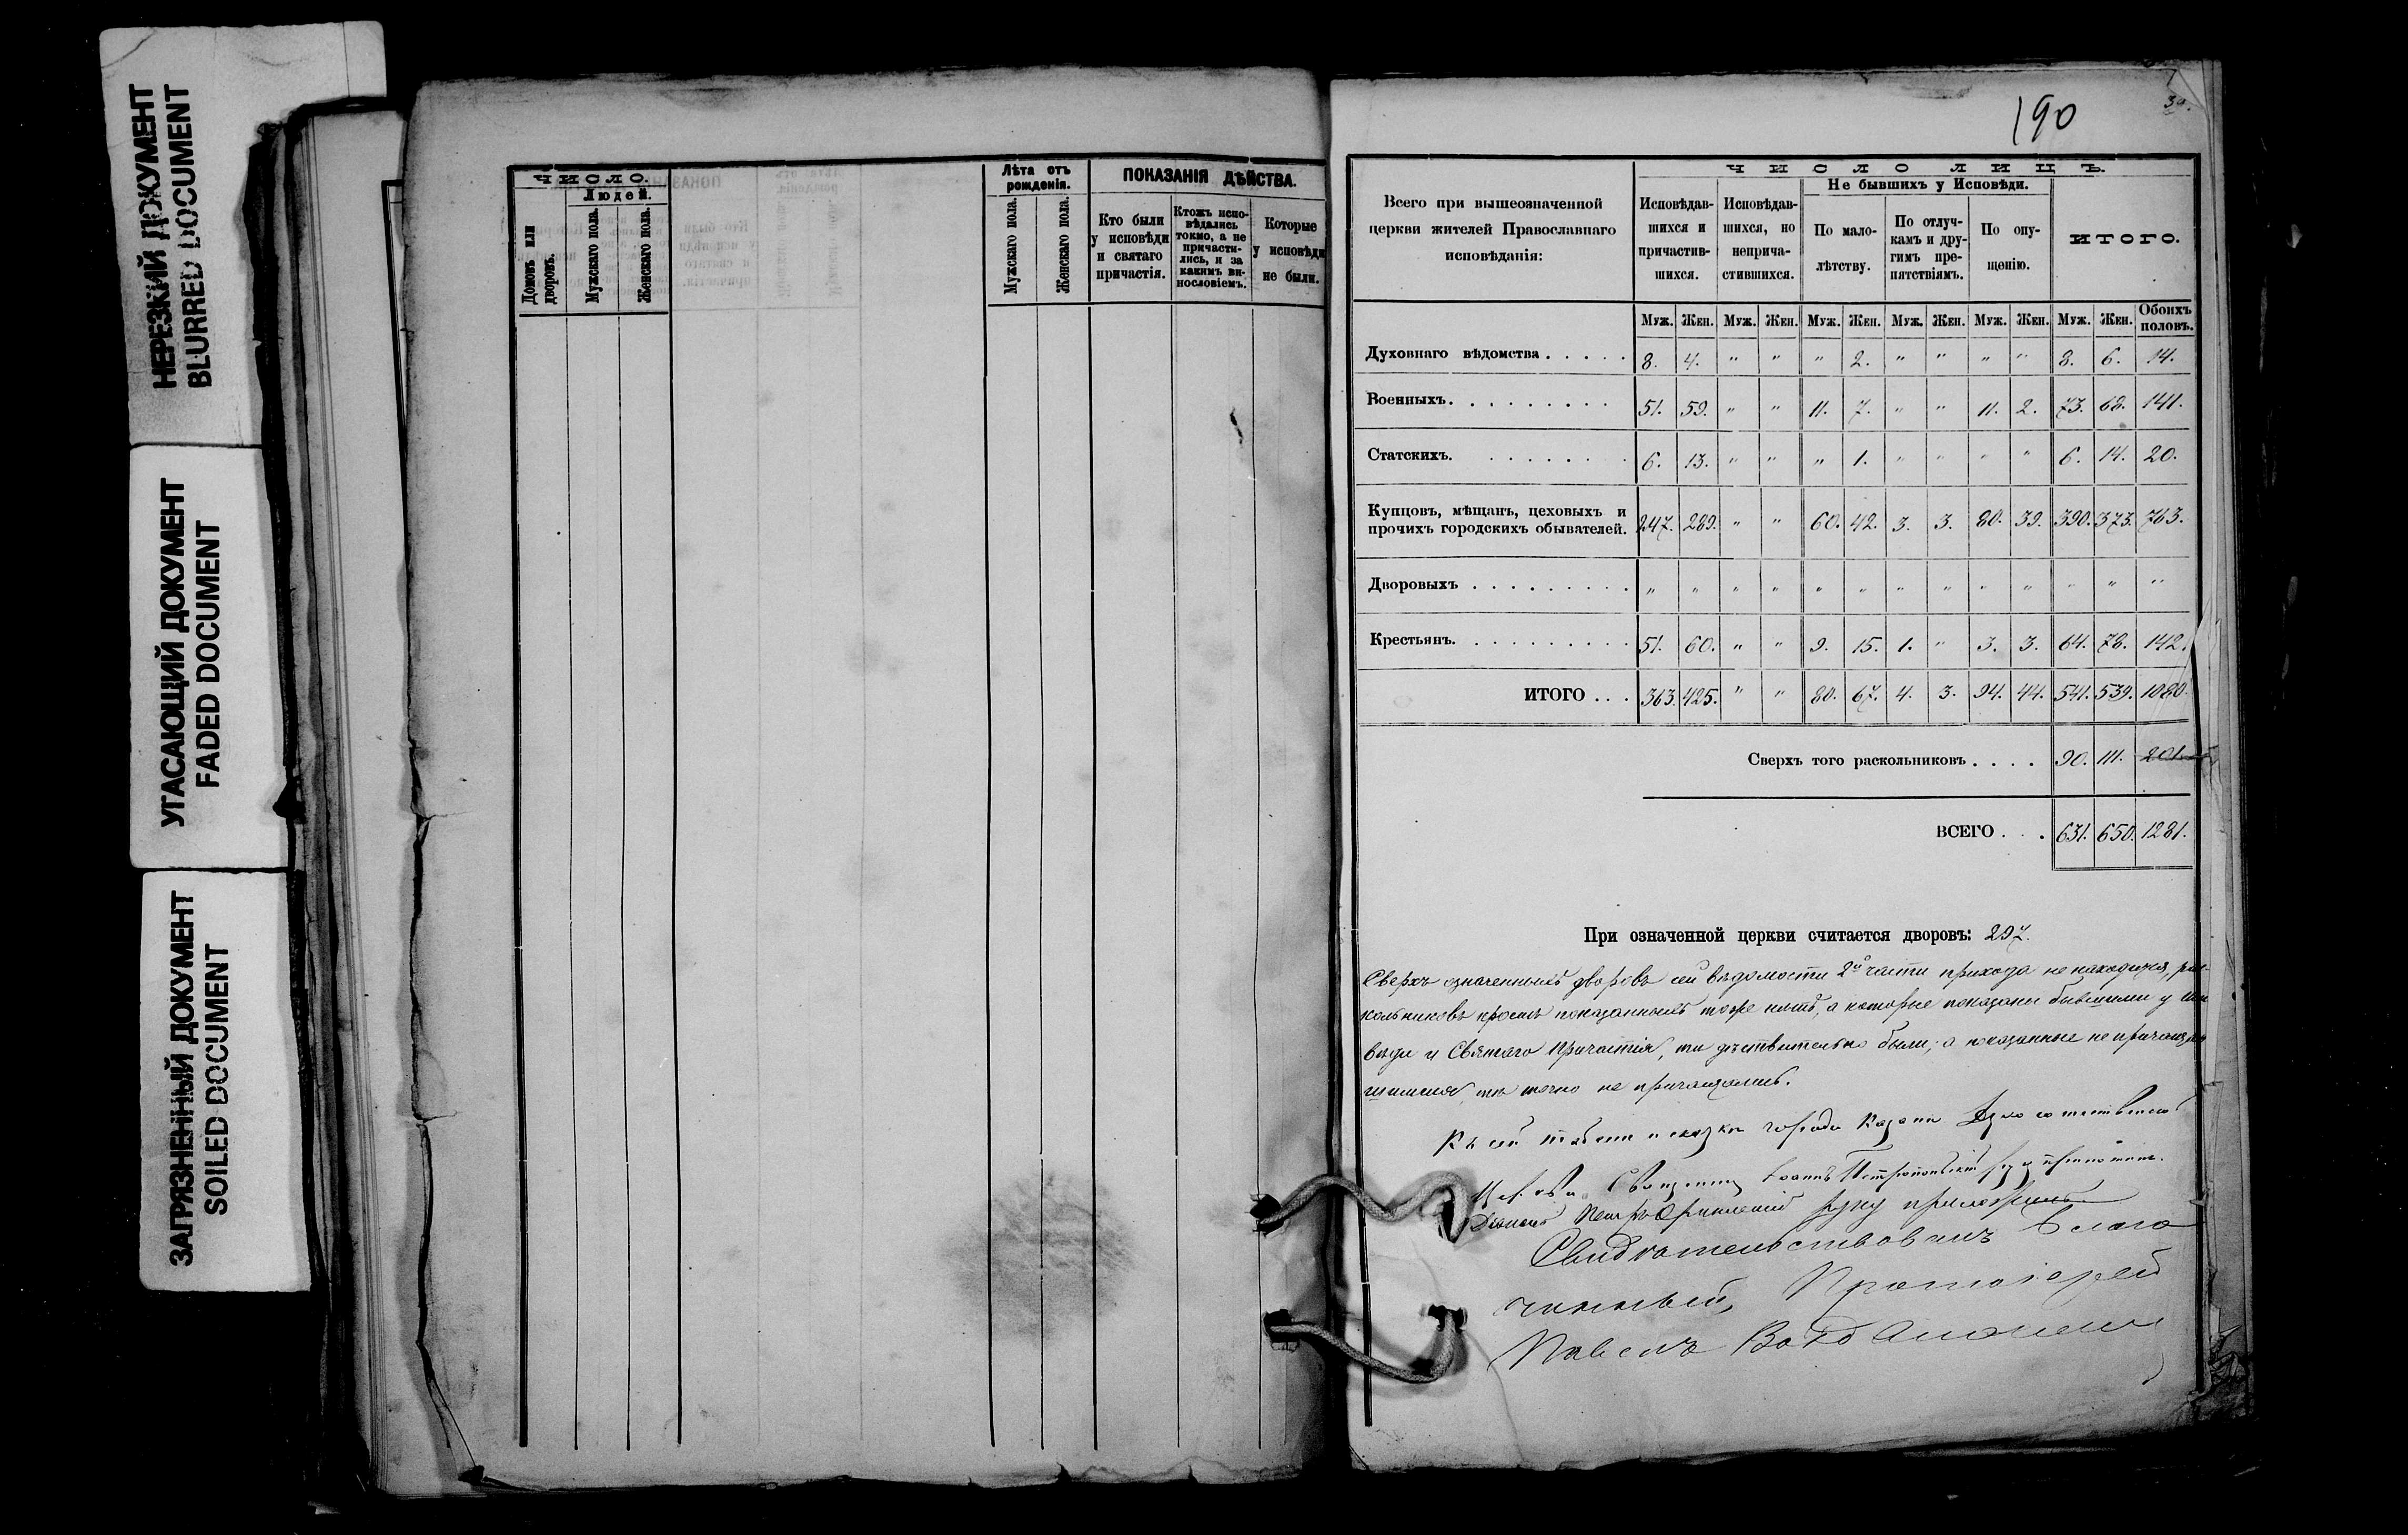 НЕРЕЗКИЙ ДОКУМЕНТ
BLURRED DOCUMENT
УГАСАЮЩИЙ ДОКУМЕНТ
FADED DOCUMENT
ЗАГРЯЗНЕННЫЙ ДОКУМЕНТ
SOILED DOCUMENT
ЧИСЛО.
Людей.
Домовъ или дворовъ.
Мужскаго пола.
Женскаго пола.
Лѣта отъ рожденія.
Мужскаго пола.
Женскаго пола.
ПОКАЗАНІЯ ДѢЙСТВА.
Кто были у исповѣди и святаго причастія.
Ктожъ исповѣдались токмо, а не причастились, и за какимъ винословіемъ.
Которые у исповѣди не были.
190
Всего при вышеозначенной
церкви жителей Православнаго
исповѣданія:
ЧИСЛО ЛИЦЪ.
Исповѣдавшихся и причастившихся.
Исповѣдавшихся, но непричастившихся.
Не бывшихъ у Исповѣди.
По малолѣтству.
По отлучкамъ и другимъ препятствіямъ.
По опущенію.
ИТОГО.
Муж. Жен. Муж. Жен. Муж. Жен. Муж. Жен. Муж. Жен. Муж. Жен. Обоихъ половъ.
Духовнаго вѣдомства . . . . . 8. 4. " " " 2. " " " " 8. 6. 14.
Военныхъ. . . . . . . . . 51. 59. " " 11. 7. " " 11. 2. 73. 68. 141.
Статскихъ. . . . . . . . 6. 13. " " " 1. " " " " 6. 14. 20.
Купцовъ, мѣщанъ, цеховыхъ и
прочихъ городскихъ обывателей. 247. 289. " " 60. 42. 3. 3. 80. 39. 390. 373. 763.
Дворовыхъ . . . . . . . . . " " " " " " " " " " " " "
Крестьянъ. . . . . . . . . . 51. 60. " " 9. 15. 1. " 3. 3. 64. 78. 142.
ИТОГО . . . 363. 425. " " 80. 67. 4. 3. 94. 44. 541. 539. 1080.
Сверхъ того раскольниковъ . . . . 90. 111. 201.
ВСЕГО . . . 631. 650. 1281.
При означенной церкви считается дворовъ: 297.
Сверхъ означенныхъ дворовъ сей вѣдомости 2й части прихода не находится, рас-
кольниковъ кромѣ показанныхъ тоже нѣтъ, а которые показаны бывшими у
вѣди и Святаго Причастія, тѣ дѣйствительно были; а показанные не
тѣ точно не причащались.
Къ сей города Казани
Церкви Священникъ Іоаннъ руку приложилъ.
Діаконъ Петръ руку приложилъ
Свидѣтельствовалъ Благо
чинный, Протоіерей
Павелъ